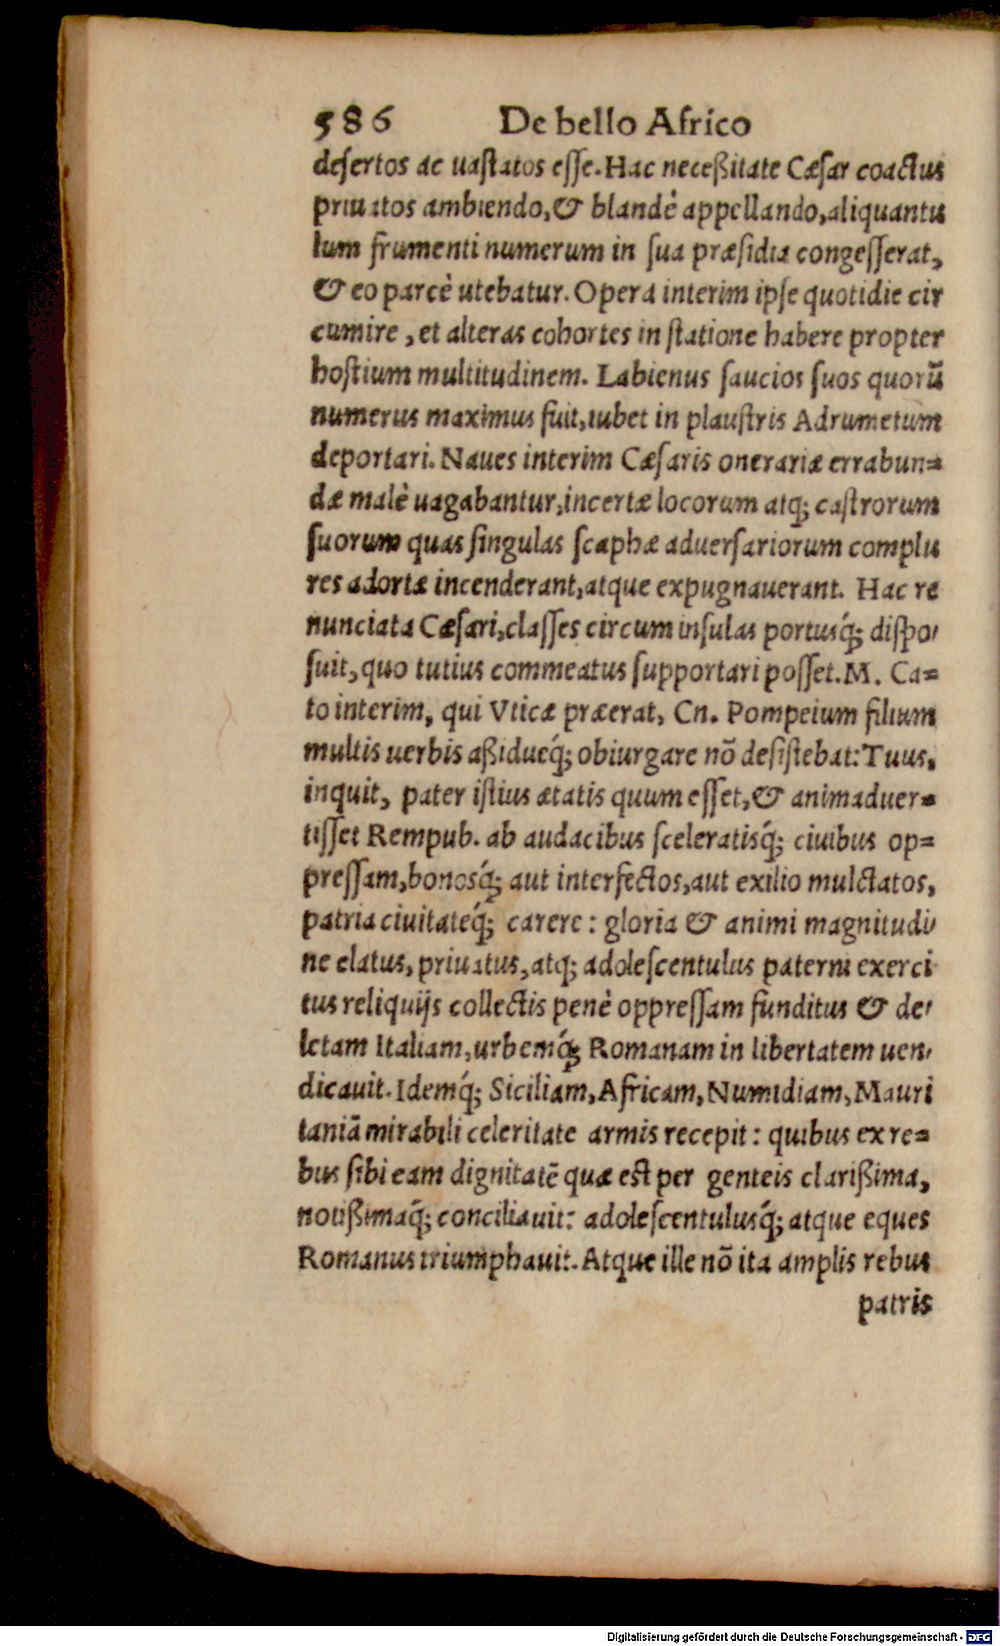 586 De bello Africo
deſertos ac uaſtatos eſſe. Hac neceßitate Cæſar coactus
priuatos ambiendo, & blandè appellando, aliquantu
lum frumenti numerum in ſua præſidia congeſſerat,
& eo parcè utebatur. Opera interim ipſe quotidie cir
cumire, et alteras cohortes in ſtatione habere propter
hoſtium multitudinem. Labienus ſaucios ſuos quorũ
numerus maximus fuit, iubet in plauſtris Adrumetum
deportari. Naues interim Cæſaris onerariæ errabun=
dæ malè uagabantur, incertæ locorum atq; caſtrorum
ſuorum quas ſingulas ſcaphæ aduerſariorum complu
res adortæ incenderant, atque expugnauerant. Hac re
nunciata Cæſari, claſſes circum inſulas portusq́; diſpo,
ſuit, quo tutius commeatus ſupportari poſſet. M. Ca=
to interim, qui Vticæ præerat, Cn. Pompeium filium
multis uerbis aßidueq́; obiurgare nõ deſiſtebat: Tuus,
inquit, pater iſtius ætatis quum eſſet, & animaduer=
tiſſet Rempub. ab audacibus ſceleratisq́; ciuibus op=
preſſam, bonosq́; aut interfectos, aut exilio mulctatos,
patria ciuitateq́; carere: gloria & animi magnitudi,
ne elatus, priuatus, atq; adoleſcentulus paterni exerci
tus reliquijs collectis penè oppreſſam funditus & de,
letam Italiam, urbemq́; Romanam in libertatem uen,
dicauit. Idemq́; Siciliam, Africam, Numidiam, Mauri
taniã mirabili celeritate armis recepit: quibus ex re=
bus ſibi eam dignitatẽ quæ est per genteis clarißima,
notißimaq́; conciliauit: adoleſcentulusq́; atque eques
Romanus triumphauit. Atque ille nõ ita amplis rebus
patris
Digitalisierung gefördert durch die Deutsche Forschungsgemeinschaft - DFG